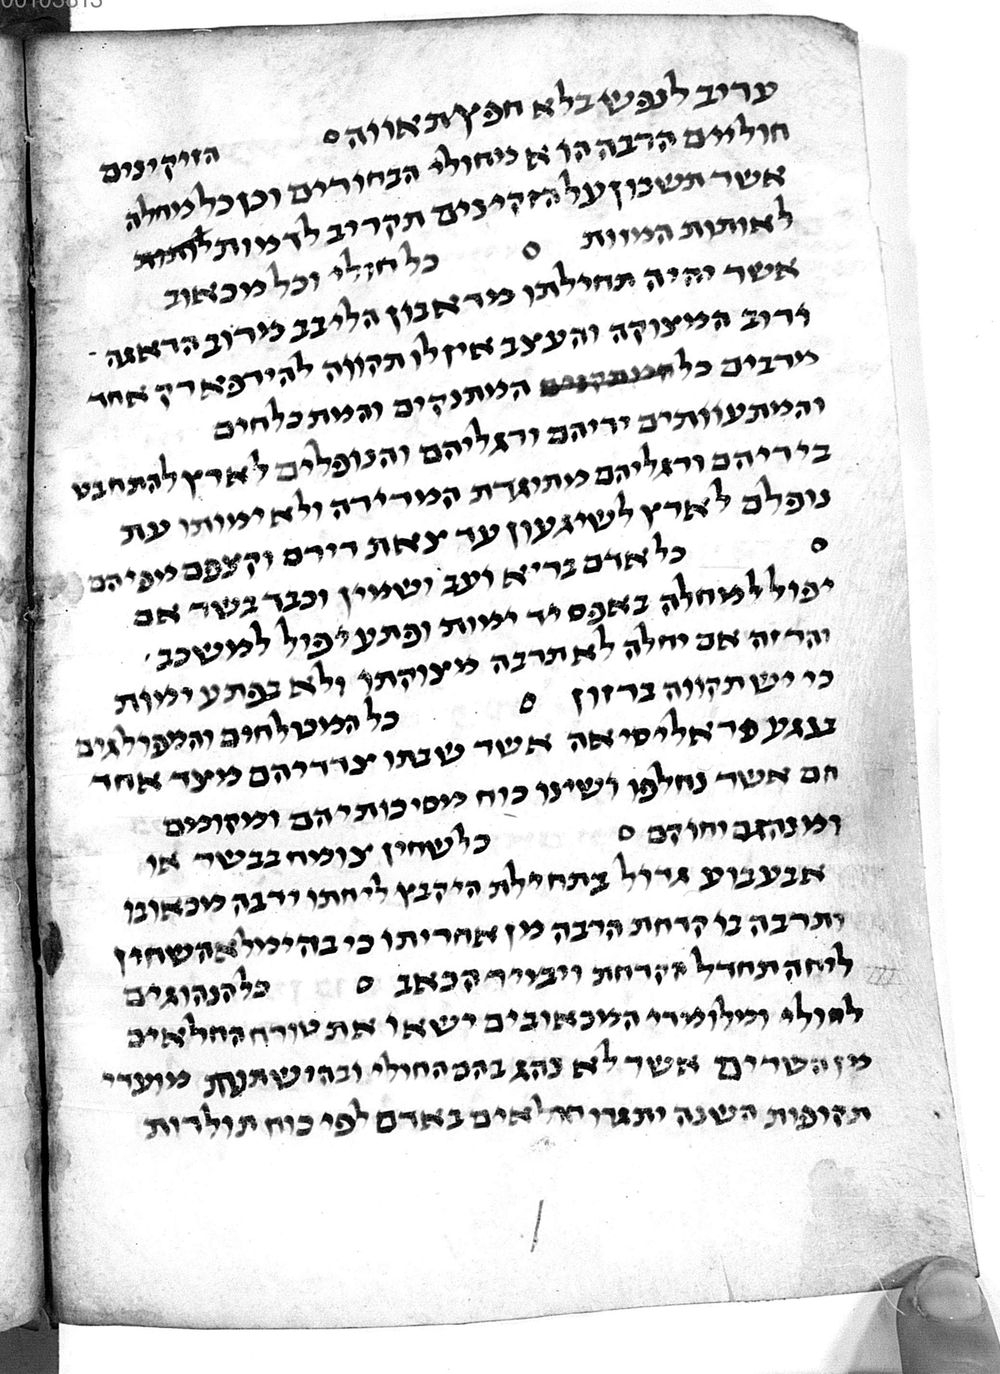 00105813
עריב לנפש בלא חפץ תאווה ο הזיקינים
חוליים הרבה הוא מחולי הבחורים וכן כל מחלה
אשר תשכון על הזקינים תקריב לדמות לאותות
לאותות המוות ο כל חולי וכל מכאוב
אשר יהיה תחילתו מדאבון הליבב מרוב הדאגה
ורוב המצוקה והעצב אין לו תקווה להירפא רק אחד
מרבים כל המתנקים והמתכלחים
והמתעוותים ידיהם ורגליהם והנופלים לארץ להתחבט
בידיהם ורגליהם מתיגרת המרירה ולא ימותו עת
נופלם לארץ לשיגעון עד צאת רירם וקצפם מפיהם
ο כל אדם בריא ועב ושמין וכבד בשר אם
יפול למחלה באפס יד ימות ופתע יפול למשכב
והרזה אם יחלה לא תרבה מצוקתו ולא בפתע ימות
כי יש תקווה ברזון ο כל המטולחים והמפולגים
בנגע פראליסיאה אשר שבתו צדדיהם מצד אחד
הם אשר נחלפו ושינו כוח מסיכותיהם ומקומם
ומנהגם וחוקם ο כל שחין צומח בבשר או
אבעבוע גדול בתחילת היקבץ ליחתו ירבה מכאובו
ותרבה בו קדחת הרבה מן אחריתו כי בהימלא השחין
ליחה תחדל הקדחת ויבייר הכאב ο כל הנהוגים
לחולי ומלומדי המכאובים ישאו את טורח החלאים
מן השרים אשר לא נהג בהם החולי ובהישתנות מועדי
תקופות השנה יתגרו חלאים באדם לפי כוח תולדות